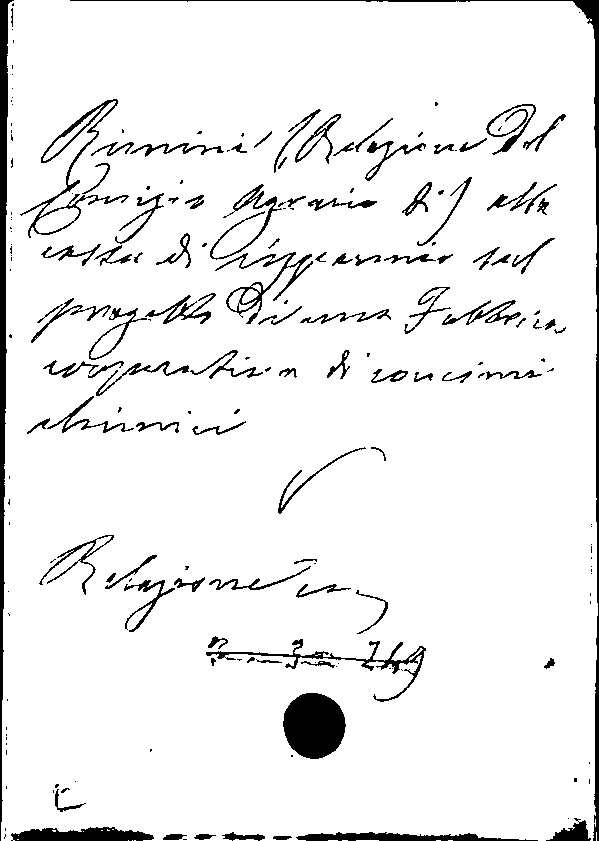 Rimini (Relazione del
Consigio Agrario di) alla
cassa di risparmio sul
progetto di una Fabbrica
cooperativa di concimi
chimici
Relazione